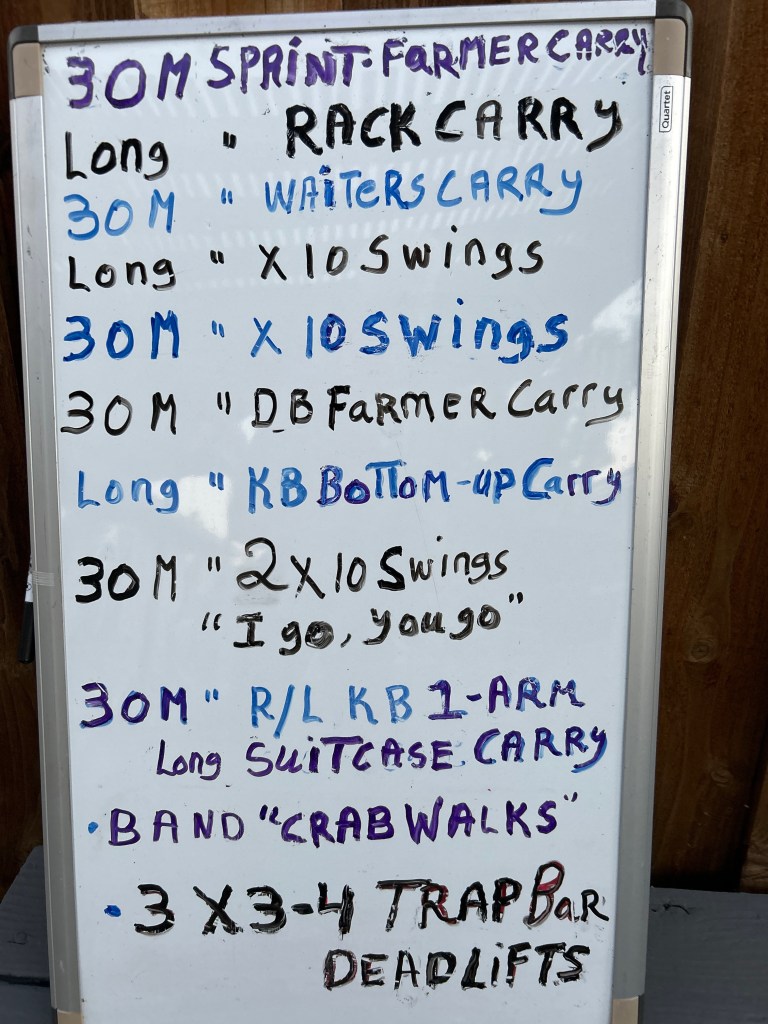 30M SPRINT-FARMER CARRY
Quartet
Long " RACK CARRY
30M " WAITERS CARRY
Long " X 10 Swings
30M " X 10 Swings
30M " DB FARMER Carry
Long " KB BOTTOM-UP Carry
30M " 2 X 10 Swings
"I go, you go"
30M " R/L KB 1-ARM
Long SUITCASE CARRY
• BAND "CRAB WALKS"
• 3 X 3-4 TRAP BaR
DEADLIFTS